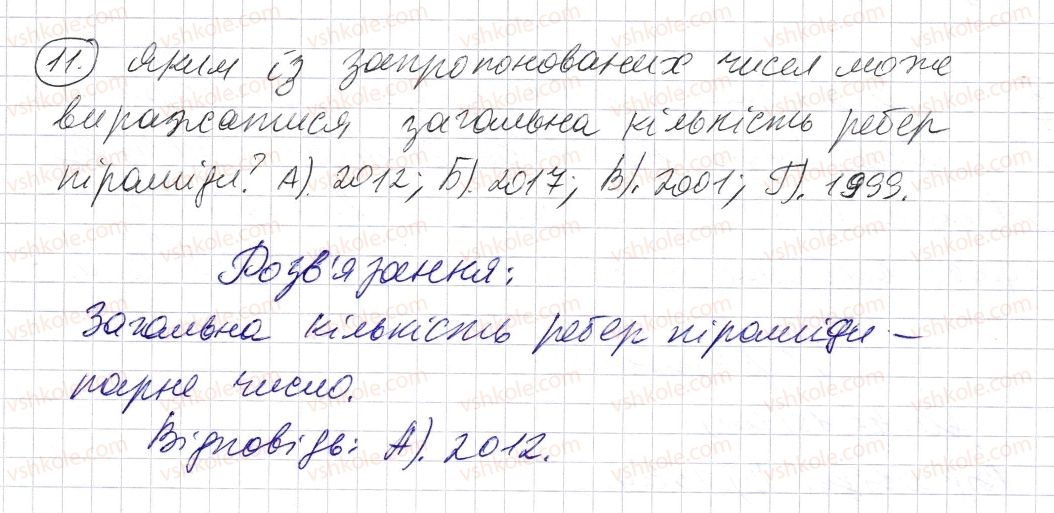 11. Яким із запропонованих чисел може
виражатися загальна кількість ребер
піраміди? А) 2012; Б). 2017; В). 2001; Г). 1999.
Розв'язання:
Загальна кількість ребер піраміди –
парне число.
Відповідь: А). 2012.